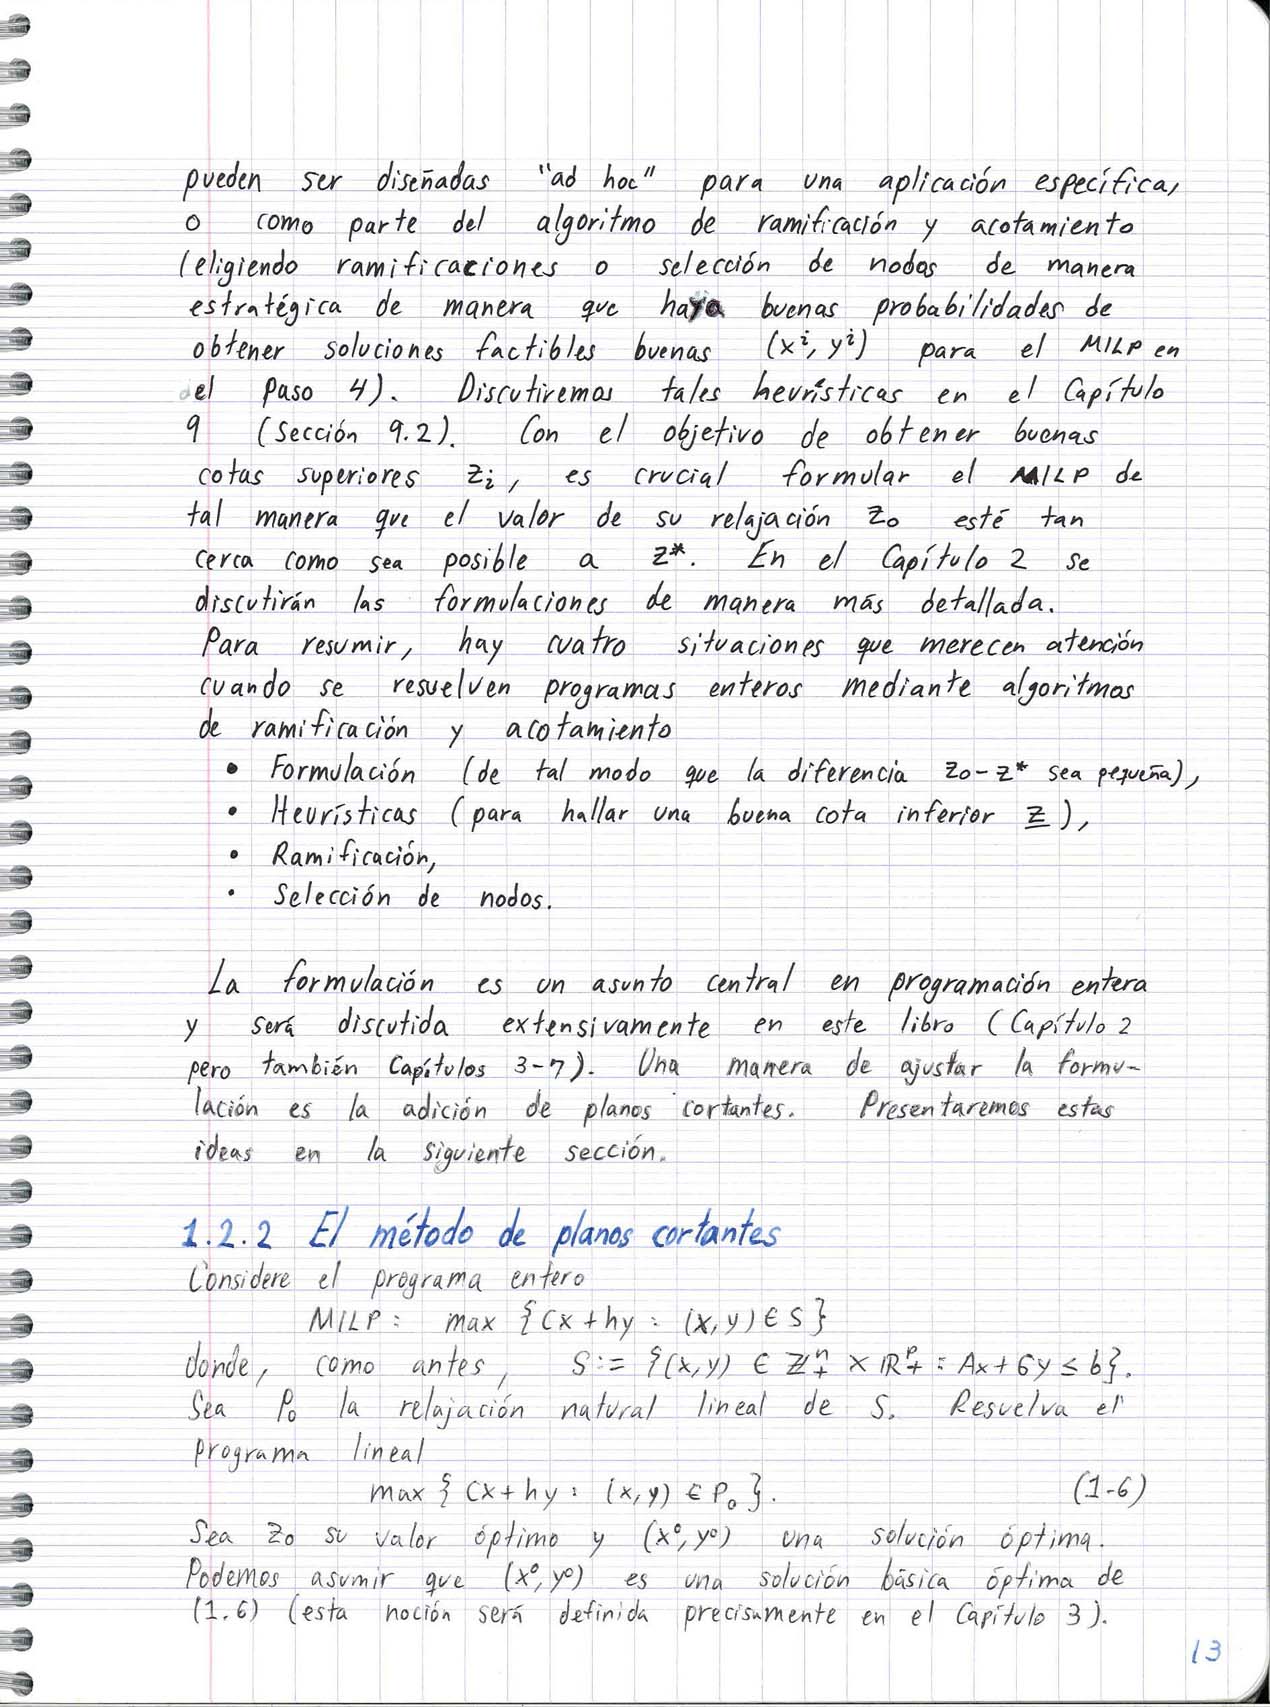 pueden ser diseñadas "ad hoc" para una aplicación específica,
o como parte del algoritmo de ramificación y acotamiento
(eligiendo ramificaciones o selección de nodos de manera
estratégica de manera que haya buenas probabilidades de
obtener soluciones factibles buenas (xⁱ, yⁱ) para el MILP en
el Paso 4). Discutiremos tales heurísticas en el Capítulo
9 (Sección 9.2). Con el objetivo de obtener buenas
cotas superiores zᵢ, es crucial formular el MILP de
tal manera que el valor de su relajación z₀ esté tan
cerca como sea posible a z*. En el Capítulo 2 se
discutirán las formulaciones de manera más detallada.
Para resumir, hay cuatro situaciones que merecen atención
cuando se resuelven programas enteros mediante algoritmos
de ramificación y acotamiento
• Formulación (de tal modo que la diferencia z₀-z* sea pequeña),
• Heurísticas (para hallar una buena cota inferior z̲),
• Ramificación,
• Selección de nodos.
La formulación es un asunto central en programación entera
y será discutida extensivamente en este libro (Capítulo 2
pero también Capítulos 3-7). Una manera de ajustar la formu-
lación es la adición de planos cortantes. Presentaremos estas
ideas en la siguiente sección.
1.2.2 El método de planos cortantes
Considere el programa entero
MILP: max {cx+hy : (x,y) ∈ S}
donde, como antes, S:= {(x,y) ∈ ℤ₊ⁿ × ℝ₊ᵖ : Ax+Gy ≤ b}.
Sea P₀ la relajación natural lineal de S. Resuelva el
programa lineal
max {cx+hy : (x,y) ∈ P₀}. (1-6)
Sea z₀ su valor óptimo y (x⁰, y⁰) una solución óptima.
Podemos asumir que (x⁰, y⁰) es una solución básica óptima de
(1.6) (esta noción será definida precisamente en el Capítulo 3).
13